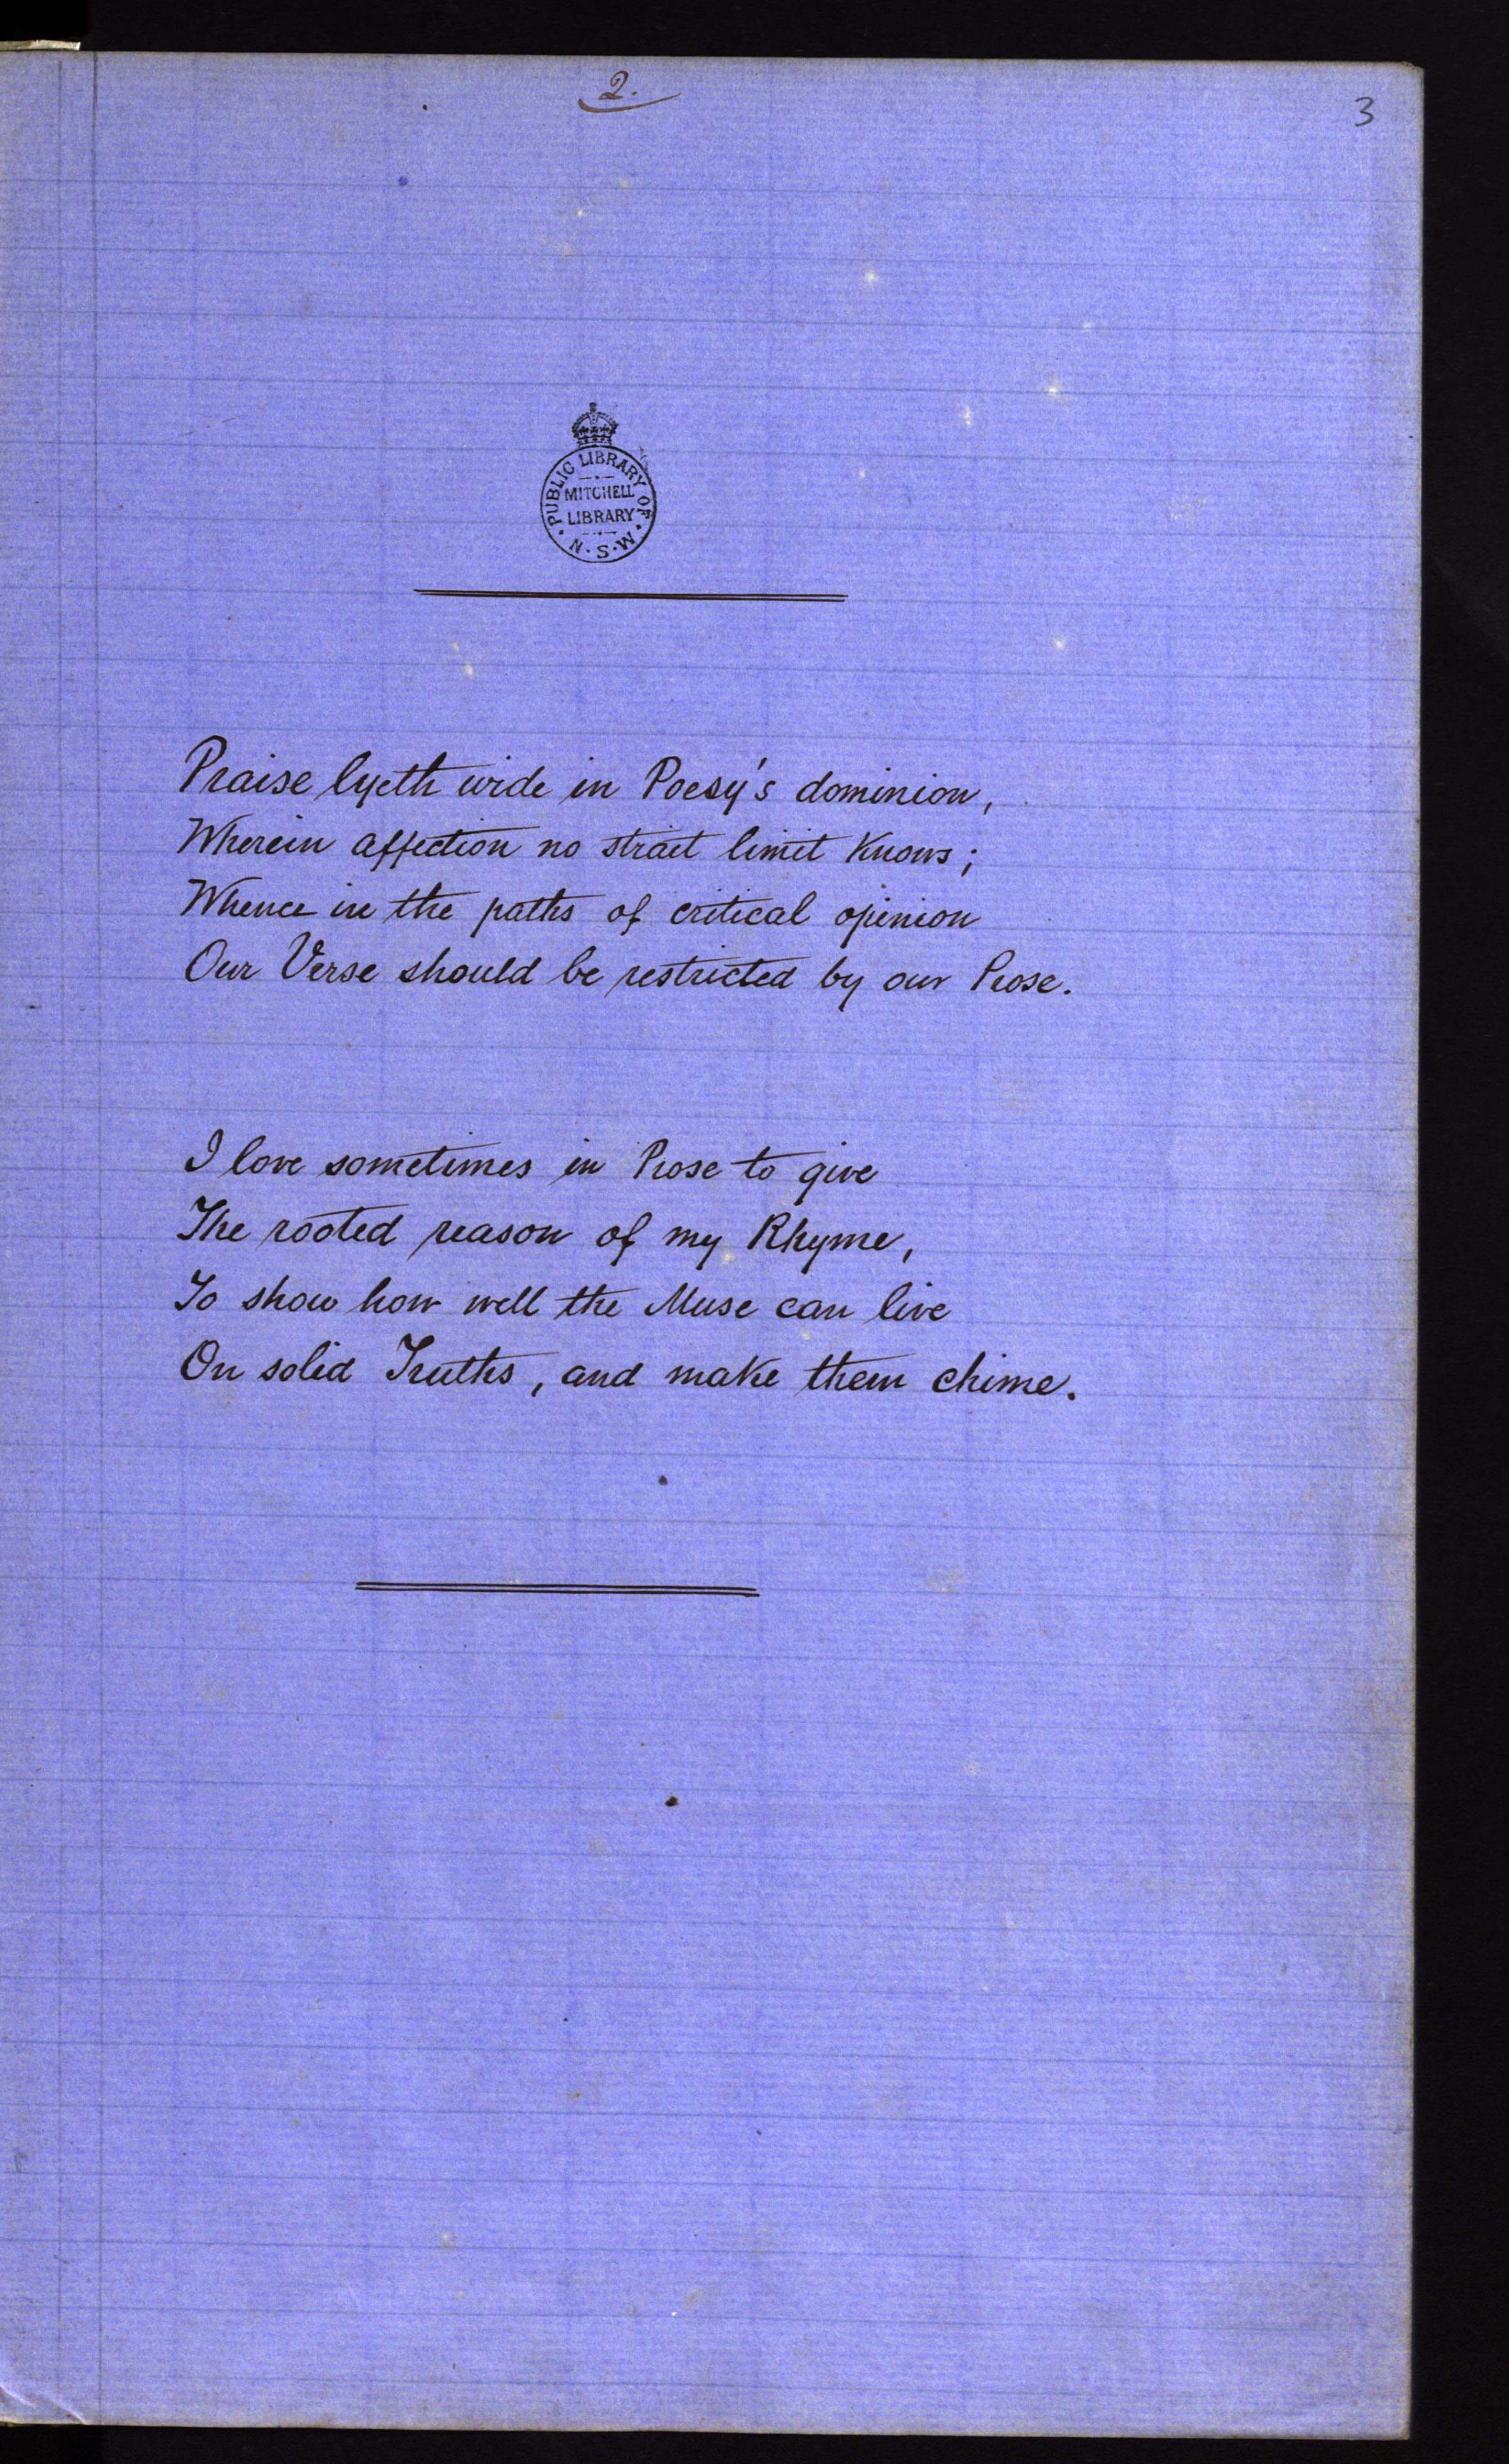 2.
3
PUBLIC LIBRARY OF N.S.W.
MITCHELL
LIBRARY
Praise lyeth wide in Poesy's dominion,
Wherein affection no strait limit knows;
Whence in the paths of critical opinion
Our Verse should be restricted by our Prose.
I love sometimes in Prose to give
The rooted reason of my Rhyme,
To show how well the Muse can live
On solid Truths, and make them chime.